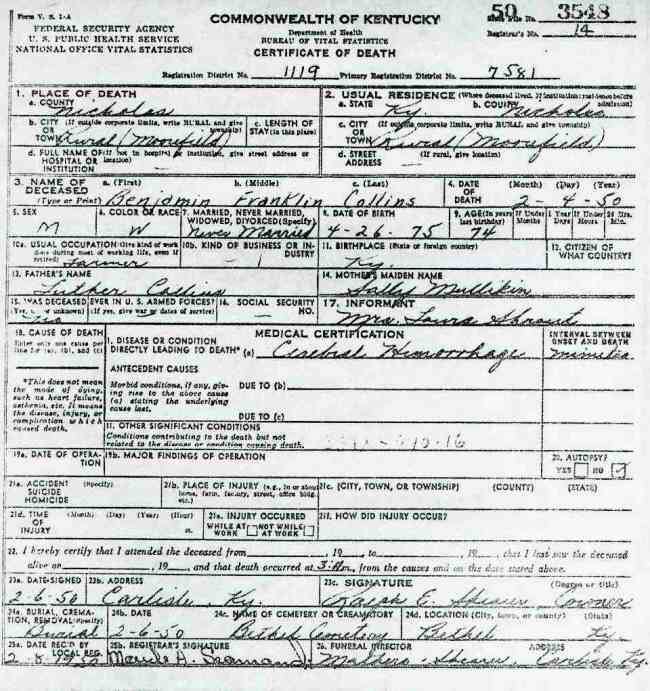 Form V. S. 1-A
COMMONWEALTH OF KENTUCKY
50 3548
FEDERAL SECURITY AGENCY
U. S. PUBLIC HEALTH SERVICE
NATIONAL OFFICE VITAL STATISTICS
Department of Health
BUREAU OF VITAL STATISTICS
CERTIFICATE OF DEATH
Registrar's No. 14
Registration District No. 1119 Primary Registration District No. 7581
1. PLACE OF DEATH
a. COUNTY Nicholas
2. USUAL RESIDENCE (Where deceased lived. If institution: residence before admission)
a. STATE Ky. b. COUNTY Nicholas
b. CITY (If outside corporate limits, write RURAL and give township) OR TOWN Rural (Moorefield)
c. LENGTH OF STAY (in this place)
c. CITY (If outside corporate limits, write RURAL and give township) OR TOWN Rural (Moorefield)
d. FULL NAME OF (If not in hospital or institution, give street address or location) HOSPITAL OR INSTITUTION
d. STREET ADDRESS (If rural, give location)
3. NAME OF DECEASED (Type or Print) a. (First) b. (Middle) c. (Last)
Benjamin Franklin Collins
4. DATE OF DEATH (Month) (Day) (Year)
2- 4 - 50
5. SEX M
6. COLOR OR RACE W
7. MARRIED, NEVER MARRIED, WIDOWED, DIVORCED (Specify) Never Married
8. DATE OF BIRTH 4-26-75
9. AGE (In years last birthday) 74
If Under 1 Year Months Days
If Under 24 Hrs. Hours Min.
10a. USUAL OCCUPATION (Give kind of work done during most of working life, even if retired) Farmer
10b. KIND OF BUSINESS OR INDUSTRY
11. BIRTHPLACE (State or foreign country) Ky.
12. CITIZEN OF WHAT COUNTRY?
13. FATHER'S NAME
Luther Collins
14. MOTHER'S MAIDEN NAME
Sally Mullikin
15. WAS DECEASED EVER IN U. S. ARMED FORCES?
(Yes, no, or unknown) (If yes, give war or dates of service)
16. SOCIAL SECURITY NO.
17. INFORMANT
Mrs. Laura
18. CAUSE OF DEATH
Enter only one cause per line for (a), (b), and (c)
MEDICAL CERTIFICATION
INTERVAL BETWEEN ONSET AND DEATH
I. DISEASE OR CONDITION DIRECTLY LEADING TO DEATH* (a) Cerebral Hemorrhage minutes
*This does not mean the mode of dying, such as heart failure, asthenia, etc. It means the disease, injury, or complication which caused death.
ANTECEDENT CAUSES
Morbid conditions, if any, giving rise to the above cause (a) stating the underlying cause last.
DUE TO (b)
DUE TO (c)
II. OTHER SIGNIFICANT CONDITIONS
Conditions contributing to the death but not related to the disease or condition causing death.
19a. DATE OF OPERATION
19b. MAJOR FINDINGS OF OPERATION
20. AUTOPSY?
YES NO
21a. ACCIDENT SUICIDE HOMICIDE (Specify)
21b. PLACE OF INJURY (e.g., in or about home, farm, factory, street, office bldg., etc.)
21c. (CITY, TOWN, OR TOWNSHIP) (COUNTY) (STATE)
21d. TIME OF INJURY (Month) (Day) (Year) (Hour) m.
21e. INJURY OCCURRED
WHILE AT WORK NOT WHILE AT WORK
21f. HOW DID INJURY OCCUR?
22. I hereby certify that I attended the deceased from , 19 , to , 19 , that I last saw the deceased
alive on , 19 , and that death occurred at m., from the causes and on the date stated above.
23a. DATE SIGNED 2-6-50
23b. ADDRESS Carlisle, Ky.
23c. SIGNATURE (Degree or title)
Ralph E. Shearer Coroner
24a. BURIAL, CREMATION, REMOVAL (Specify) Burial
24b. DATE 2-6-50
24c. NAME OF CEMETERY OR CREMATORY Bethel Cemetery
24d. LOCATION (City, town, or county) (State)
Bethel Ky.
25a. DATE REC'D BY LOCAL REG. 2-8-1950
25b. REGISTRAR'S SIGNATURE
26. FUNERAL DIRECTOR ADDRESS
Mathers - Shearer, Carlisle Ky.